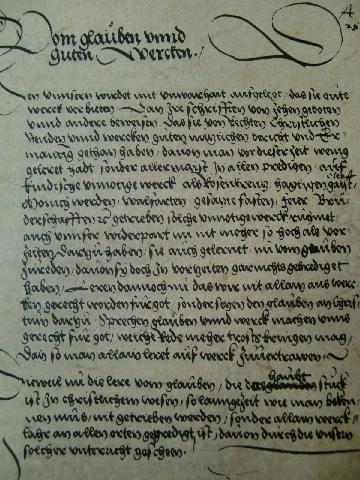 4
28
Vom glauben vnnd
guten Wercken.
Den vnnsern wirdet mit vnwarhait aufgelegt, das sie gute
werck verbieten / Dan ire schrifften von zehen geboten
vnnd andere beweisen Das sie von rechten Christlichen
Stenden vnnd wercken guten nutzlichen bericht vnd Er-
manung gethan haben, dauon man vor dieser zeit wenig
geleret hadt sonder allermaist In allen predigen, auf
kindische vnnotige werck als Rosenkrenz hayligen
Monch werden, walfarten gesatzte fasten, feier Bru-
derschafften &c getrieben solche vnnotige werck rumet
auch vnnser widerpart nu nit mehr so hoch als vor
zeiten, Darzu haben sie auch gelernet nu vom glauben
zureden, dauon sy doch In vorzeiten gar nichts geprediget
haben / Leren dannoch nu das wir nit allain aus werc-
ken gerecht werden fur got, sonder setzen den glauben an chris
tum darzu Sprechen glauben vnnd werck machen vnns
gerecht fur got, welche Rede meher trosts bringen mag,
Dan so man allain leret auf werck zuuertrawen
Dieweil nu die lere vom glauben, die das haubt stuck
ist In christlichem wesen, so lanngezeit wie man beken-
nen mus, nit getrieben worden, sonder allain werck-
lahr an allen orten gepredigt ist, dauon durch die vnnsern
solcher vnterricht gescheen.